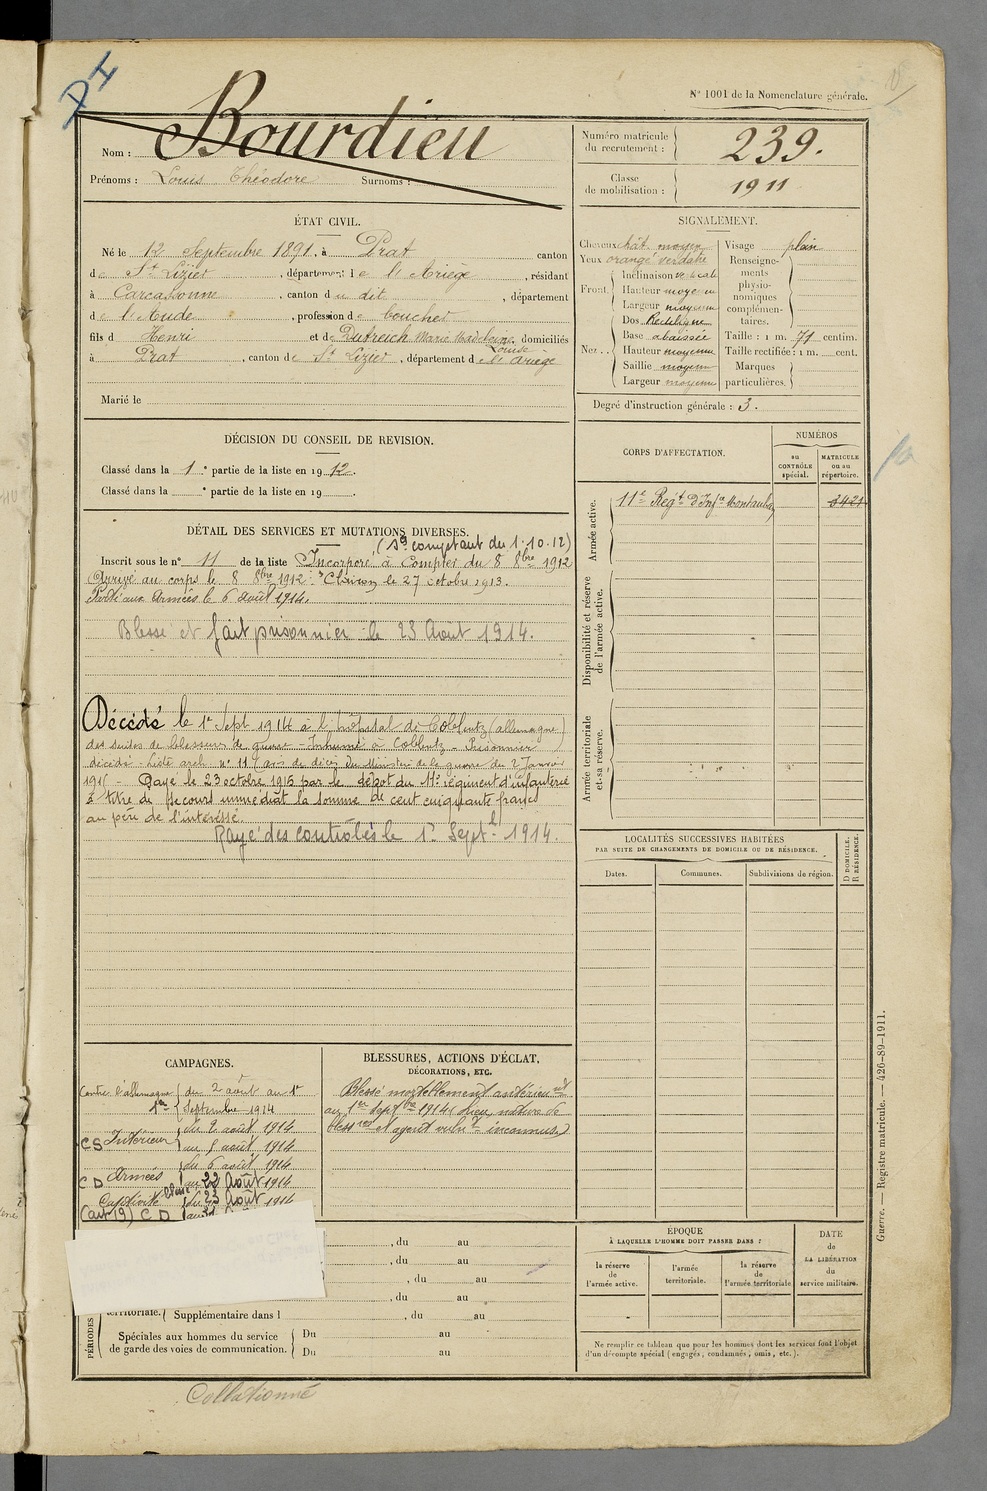 D I
N° 1001 de la Nomenclature générale.
Nom : Bourdieu
Prénoms : Louis Théodore Surnoms :
Numéro matricule du recrutement : 239.
Classe de mobilisation : 1911
ÉTAT CIVIL.
Né le 12 Septembre 1891, à Prat canton
de St Lizier, département de l'Ariège, résidant
à Carcassonne, canton du dit, département
de l'Aude, profession de boucher
fils d Henri et de Dutreich Marie Madeleine Louise, domiciliés
à Prat, canton de St Lizier, département de l'Ariège
Marié le
SIGNALEMENT.
Cheveux chât. moyen Visage plein
Yeux orangé verdatre
Front. Inclinaison verticale
Hauteur moyenne
Largeur moyenne
Nez. Dos Rectiligne
Base abaissée
Hauteur moyenne
Saillie moyenne
Largeur moyenne
Renseignements physionomiques complémentaires.
Taille : 1 m. 71 centim.
Taille rectifiée : 1 m. cent.
Marques particulières.
Degré d'instruction générale : 3.
DÉCISION DU CONSEIL DE REVISION.
Classé dans la 1e partie de la liste en 1912.
Classé dans la e partie de la liste en 19 .
DÉTAIL DES SERVICES ET MUTATIONS DIVERSES.
(Sce comptant du 1.10.12)
Inscrit sous le n° 11 de la liste Incorporé à Compter du 8 8bre 1912
Arrivé au corps le 8 8bre 1912. Clairon le 27 octobre 1913.
Parti aux Armées le 6 août 1914.
Blessé et fait prisonnier le 23 Aout 1914.
Décédé le 1er Sept 1914 à l'hôpital de Coblentz (allemagne)
des suites de blessures de guerre - Inhumé à Coblentz - Prisonnier
décédé - Liste arch. n° 11 avis de décès du Ministre de la guerre du 2 Janvier
1915 - Payé le 23 octobre 1915 par le dépôt du 11e régiment d'infanterie
à titre de secours immédiat la somme de cent cinquante francs
au père de l'intéressé.
Rayé des contrôles le 1er Septb 1914.
CORPS D'AFFECTATION.
NUMÉROS
au CONTRÔLE spécial.
MATRICULE ou au répertoire.
Armée active.
11e Regt D'Infie Montauban 3421
Disponibilité et réserve de l'armée active.
Armée territoriale et sa réserve.
LOCALITÉS SUCCESSIVES HABITÉES
PAR SUITE DE CHANGEMENTS DE DOMICILE OU DE RÉSIDENCE.
Dates. Communes. Subdivisions de région.
D DOMICILE. R RÉSIDENCE.
CAMPAGNES.
Contre l'allemagne du 2 août au 1er
Septembre 1914
CS Intérieur du 2 août 1914
au 5 août 1914
CD Armées du 6 août 1914
au 22 Août 1914
Captivité Blessé du 23 Août 1914
(art 19) CD
BLESSURES, ACTIONS D'ÉCLAT,
DÉCORATIONS, ETC.
Blessé mortellement antérieurnt
au 1er septbre 1914 (lieu, nature de
blessres et agent vulnt inconnus)
, du au
, du au
, du au
, du au
territoriale. Supplémentaire dans l , du au
PÉRIODES
Spéciales aux hommes du service de garde des voies de communication. Du au
Du au
ÉPOQUE
À LAQUELLE L'HOMME DOIT PASSER DANS :
la réserve de l'armée active.
l'armée territoriale.
la réserve de l'armée territoriale
DATE de LA LIBÉRATION du service militaire.
Ne remplir ce tableau que pour les hommes dont les services font l'objet
d'un décompte spécial (engagés, condamnés, omis, etc.).
Guerre. — Registre matricule. — 426-89-1911.
Collationné